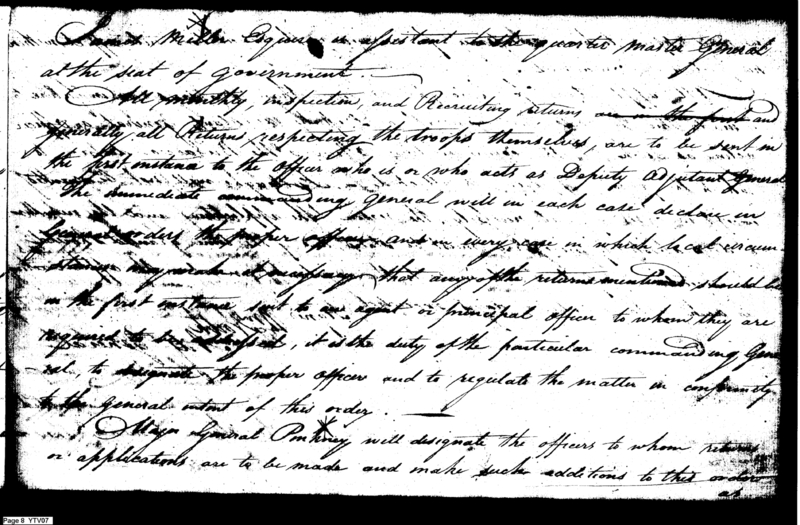 James Miller Esquire is assistant to the quarter master General
at the seat of government —
All monthly, inspection, and Recruiting returns and
generally all Returns respecting the troops themselves, are to be sent in
the first instance to the officer who is or who acts as Deputy Adjutant General
The immediate commanding General will in each case declare in
General orders the proper officer and in every case in which local circum
stances may render it necessary that any of the returns mentioned should be
in the first instance sent to an agent or principal officer to whom they are
required to be addressed, it is the duty of the particular commanding Gene
ral, to designate the proper officer and to regulate the matter in conformity
to the General intent of this order. —
Major General Pinkney will designate the officers to whom returns
or applications are to be made and make such additions to this order
as
Page 8 YTV07